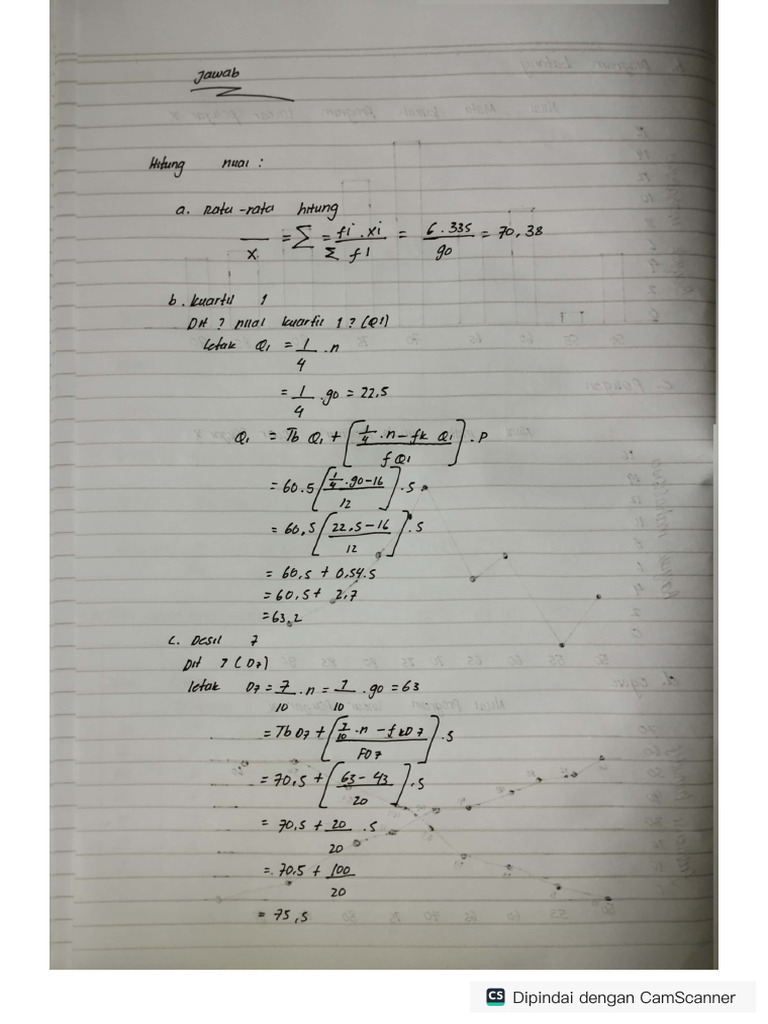 Jawab
Hitung nilai :
a. Rata-rata hitung
x = Σ = fi . xi / Σ fi = 6.335 / 90 = 70,38
b. kuartil 1
Dit ? nilai kuartil 1 ? (Q1)
letak Q1 = 1/4 . n
= 1/4 . 90 = 22.5
Q1 = Tb Q1 + [ 1/4 . n - fk Q1 / f Q1 ] . P
= 60.5 [ 1/4 . 90 - 16 / 12 ] . 5
= 60,5 [ 22.5 - 16 / 12 ] . 5
= 60,5 + 0,54.5
= 60,5 + 2,7
= 63,2
c. Desil 7
Dit ? (D7)
letak D7 = 7/10 . n = 7/10 . 90 = 63
= Tb D7 + [ 7/10 . n - fkD7 / FD7 ] . 5
= 70,5 + [ 63 - 43 / 20 ] . 5
= 70,5 + 20/20 . 5
= 70.5 + 100/20
= 75,5
CS Dipindai dengan CamScanner